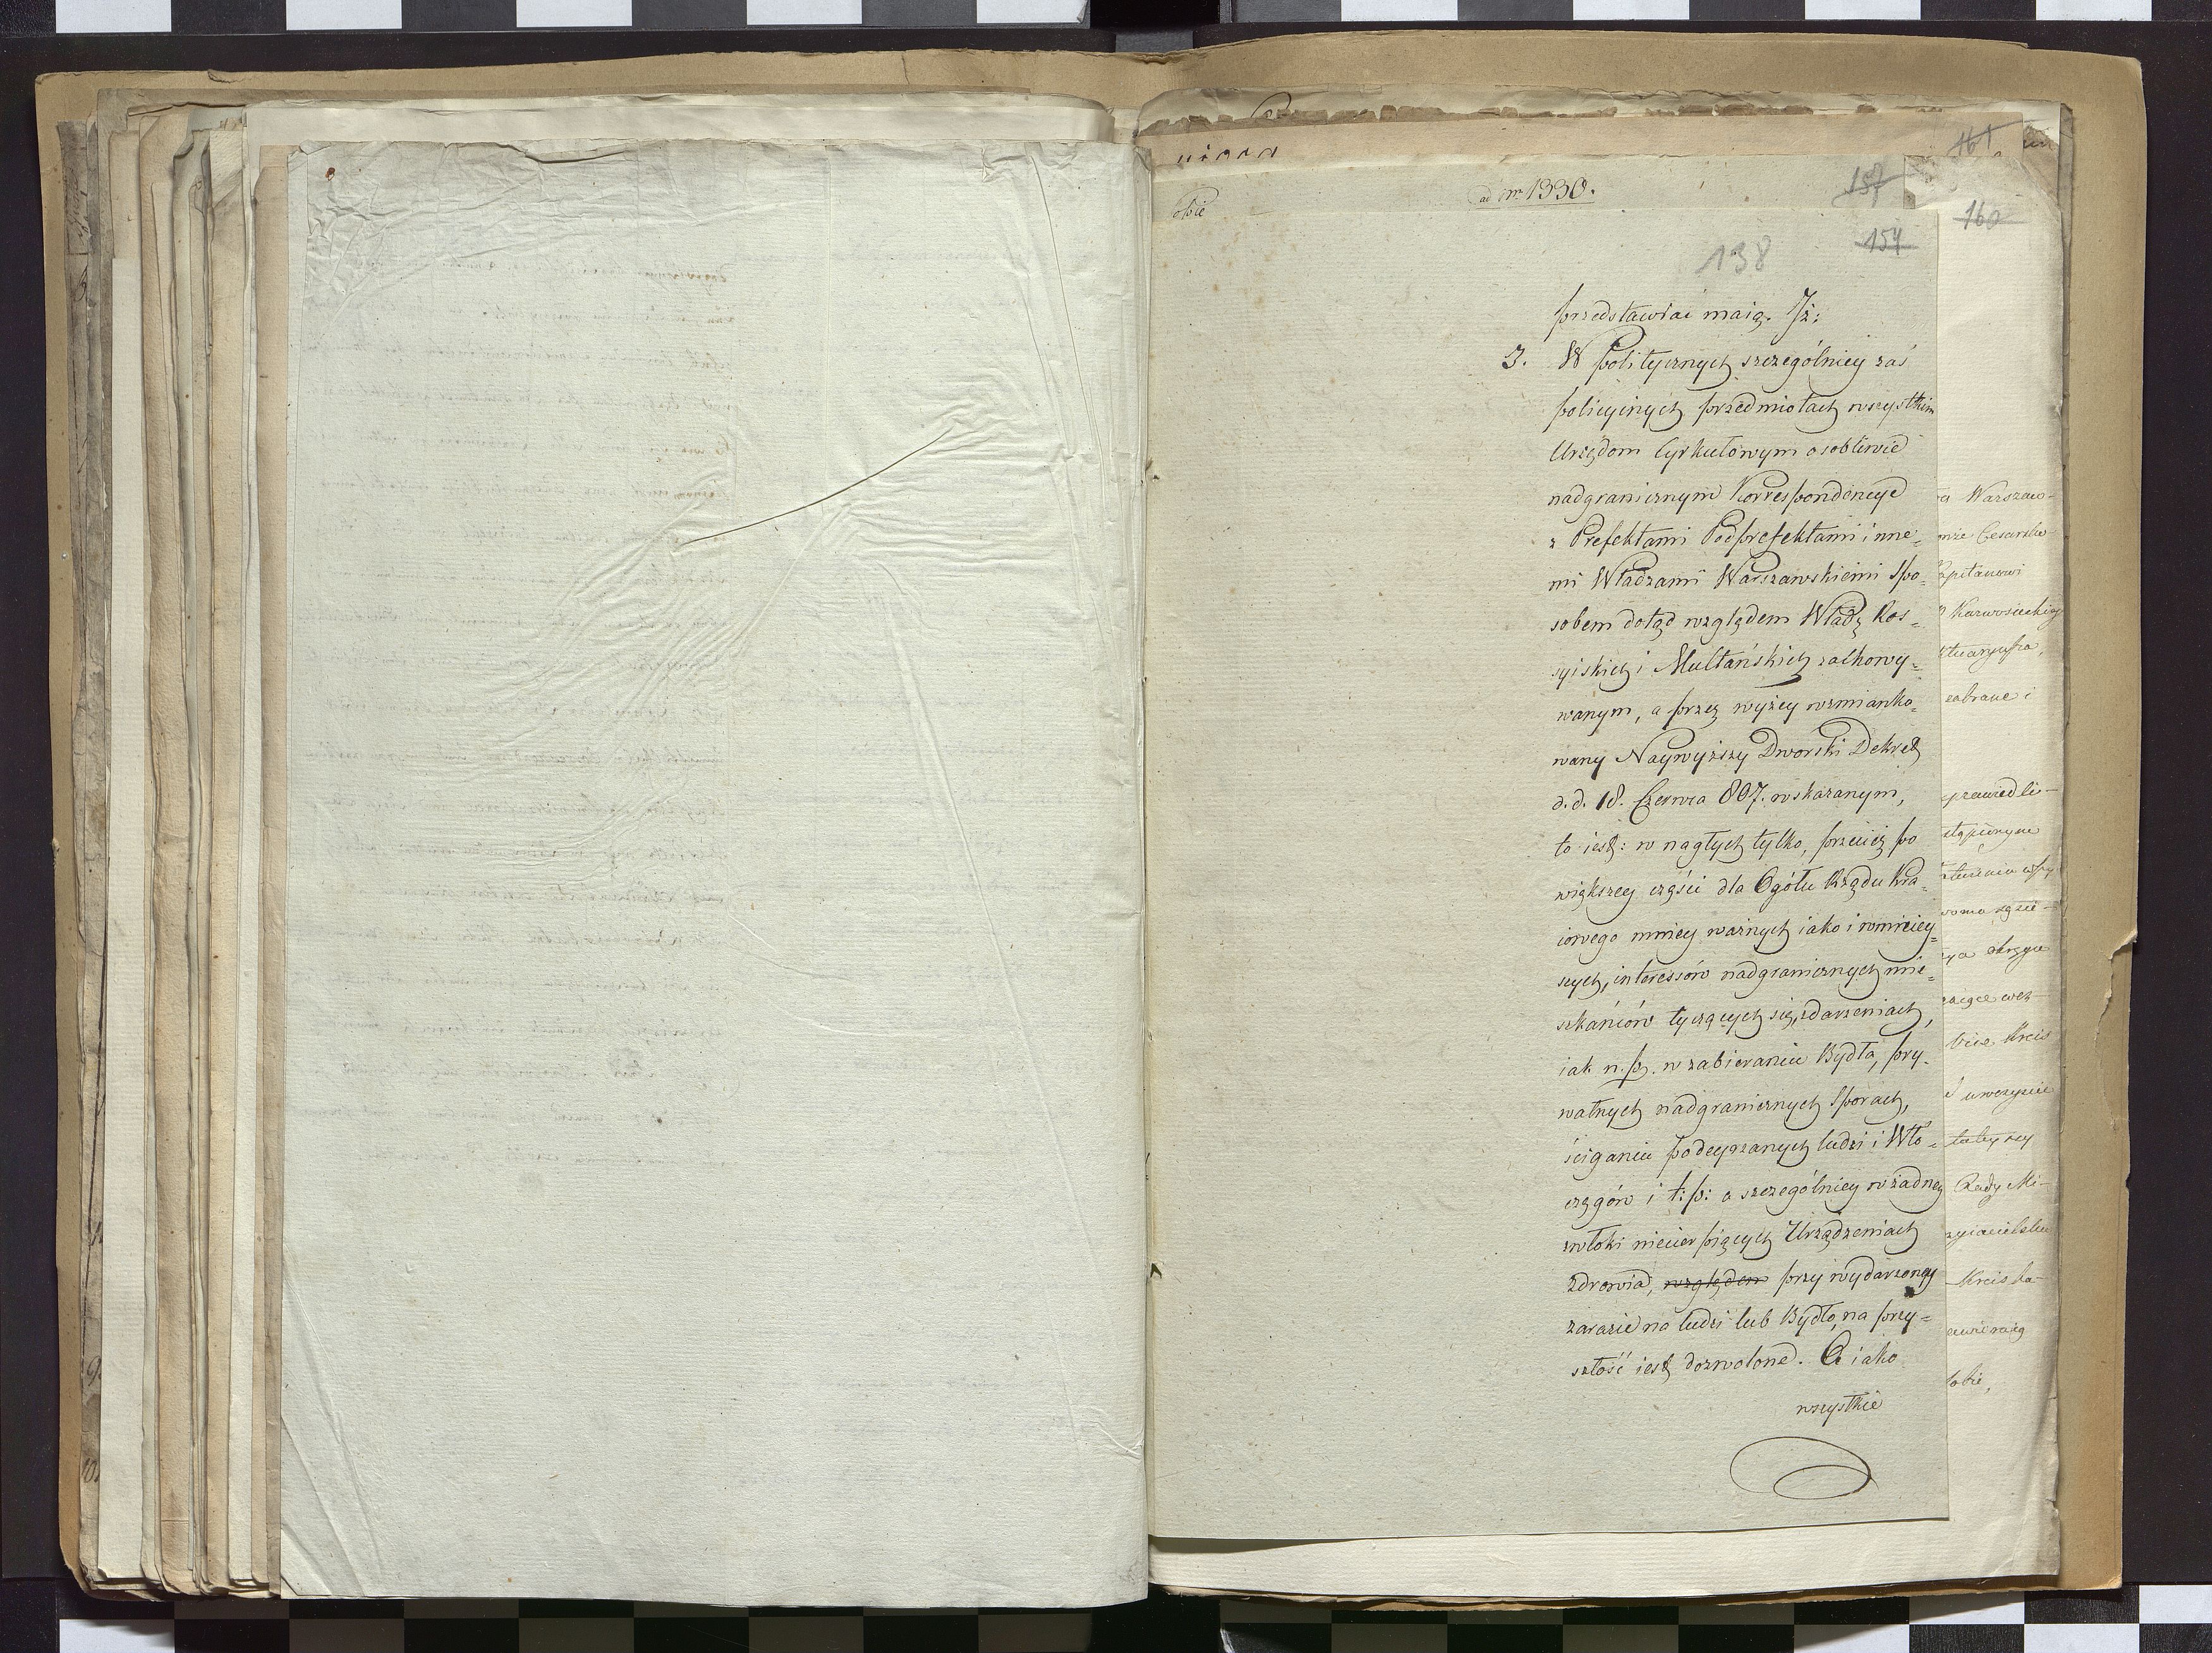 161
ad nr 1330.
157
obie
160
154
138
przedstawiać maią. Jż:
3. W politycznych szczególniey zaś
policyinych przedmiotach wszystkim
Urzędom Cyrkułowym osobliwie
nadgranicznym Korrespondencye
z Prefektami Podprefektami i inne=
mi Władzami Warszawskiemi spo=
sobem dotąd względem Władz Ros=
syiskich i Multańskich zachowy=
wanym, a przez wyżey wzmianko=
wany Naywyższy Dworski Dekret
d. d. 18. Czerwca 807. wskazanym,
to iest: w nagłych tylko, przecież po
większey części dla Ogółu Rządu Kra=
iowego mniey ważnych iako i wmniey=
szych, interessów nadgranicznych mie=
szkańców tyczących się, zdarzeniach,
iak n. p. w zabieraniu Bydła, pry=
watnych nadgranicznych sporach,
ściganiu podeyrzanych ludzi i Włó=
częgów i t: p: a szczególniey w żadney
zwłoki niecierpiących Urządzeniach
Zdrowia, względem przy wydarzoney
zarazie na ludzi lub Bydło, na przy=
szłość iest dozwolone. A iako
wszystkie
Warszaw-
Cesarsko
apitanowi
zabrane i
Vice Kreis
Rady Mi-
Kreisha-
sobie,